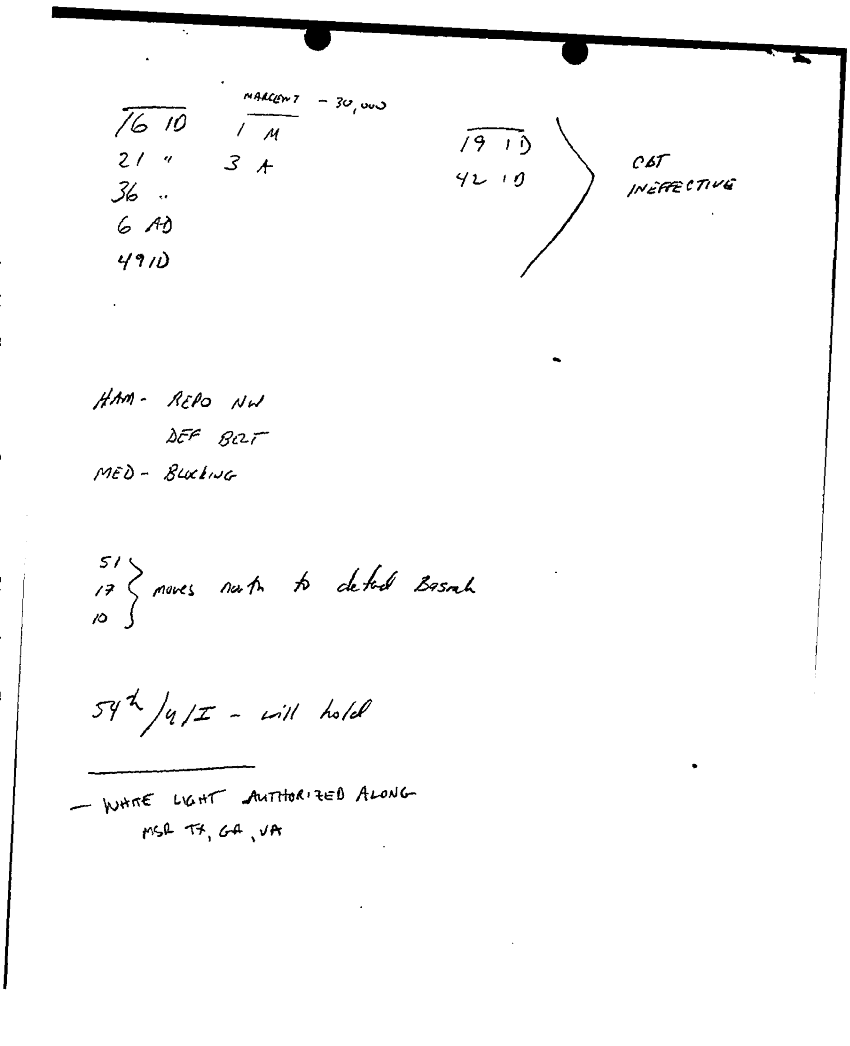 MARCENT - 30,000
16 ID 1 M
21 " 3 A
36 "
6 AD
49 ID
19 ID
42 ID
CBT
INEFFECTIVE
HAM - REPO NW
DEF BELT
MED - Blocking
51
17 } moves north to defend Basrah
10
54th/4/I - will hold
- WHITE LIGHT AUTHORIZED ALONG
MSR TX, GA, VA